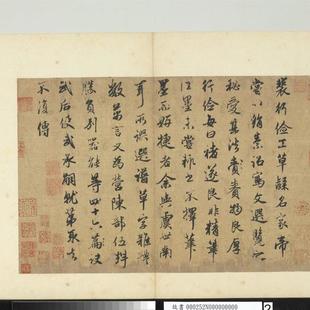 裴行儉工草隸名家帝
嘗以絹素詔寫文選覽之
秘愛其法賚物良厚
行儉每曰褚遂良非精筆
佳墨未嘗輒書不擇筆
墨而妍捷者余與虞世南
耳所譔選譜草字雜體
數萬言又為營陣部伍料
勝負別器能等四十六篇訣
武后使武承嗣就第取去
不復傳
故書 000252N000000000